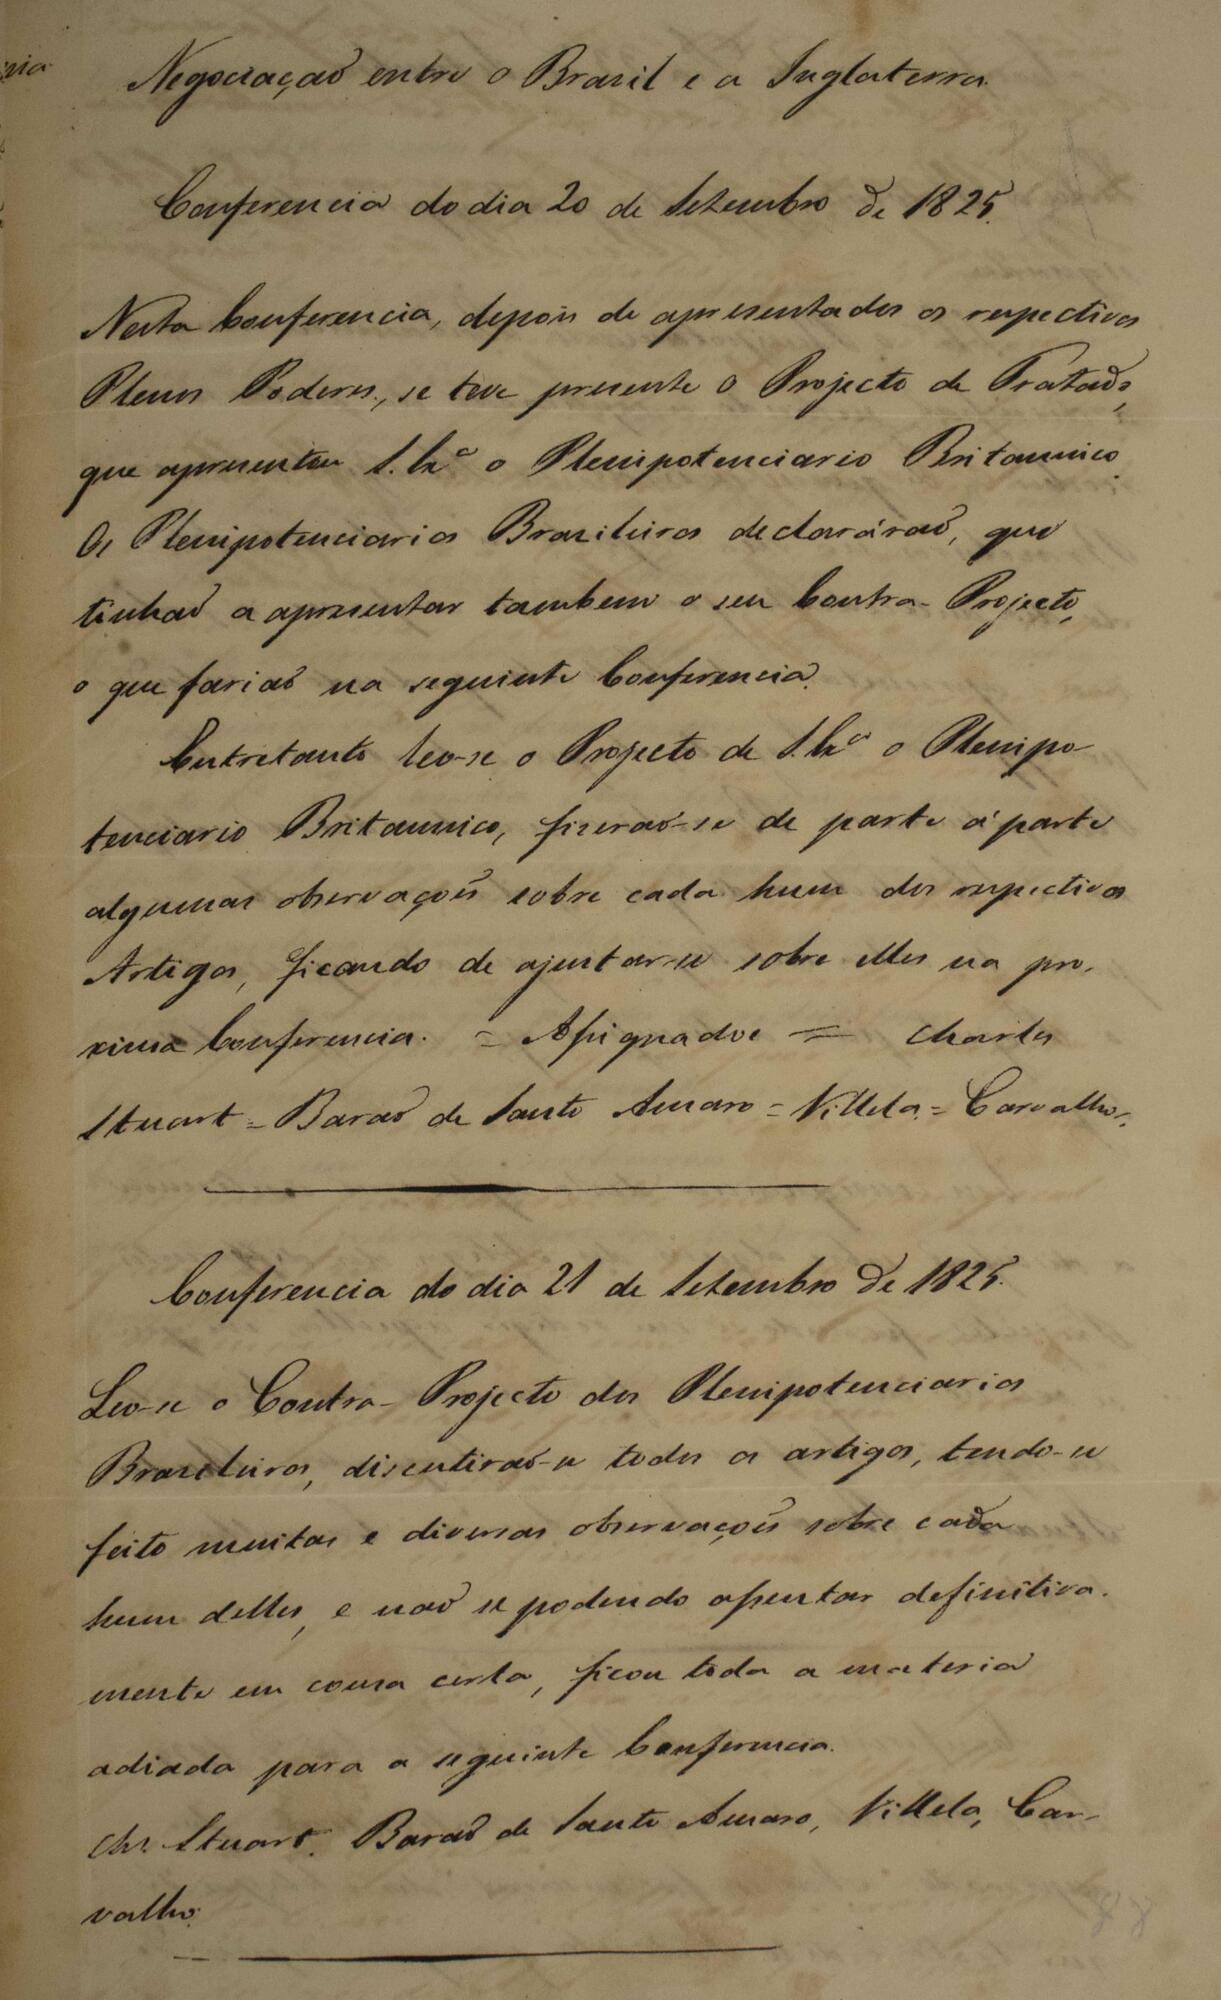 Negociaçaõ entre o Brazil e a Inglaterra.
Conferencia do dia 20 de Setembro de 1825.
Nesta Conferencia, depois de apresentados os respectivos
Plenos Poderes, se teve presente o Projecto de Tratado,
que apresentou S. Exª o Plenipotenciario Britannico.
Os Plenipotenciarios Brazileiros declaráraõ, que
tinhaõ a apresentar tambem o seu Contra-Projecto,
o que fariaõ na seguinte Conferencia.
Entretanto leo-se o Projecto de S. Exª o Plenipo-
tenciario Britannico, fizeraõ-se de parte á parte
algumas observaçoẽs sobre cada hum dos respectivos
Artigos, ficando de ajustar-se sobre elles na pro-
xima Conferencia. = Assignados = Charles
Stuart = Baraõ de Santo Amaro = Villela = Carvalho.
Conferencia do dia 21 de Setembro de 1825.
Leo-se o Contra-Projecto dos Plenipotenciarios
Brazileiros, discutiraõ-se todos os artigos, tendo-se
feito muitas e diversas observaçoẽs sobre cada
hum delles, e naõ se podendo assentar definitiva-
mente em cousa certa, ficou toda a materia
adiada para a seguinte Conferencia.
Chs Stuart. Baraõ de Santo Amaro, Villela, Car-
valho.
88